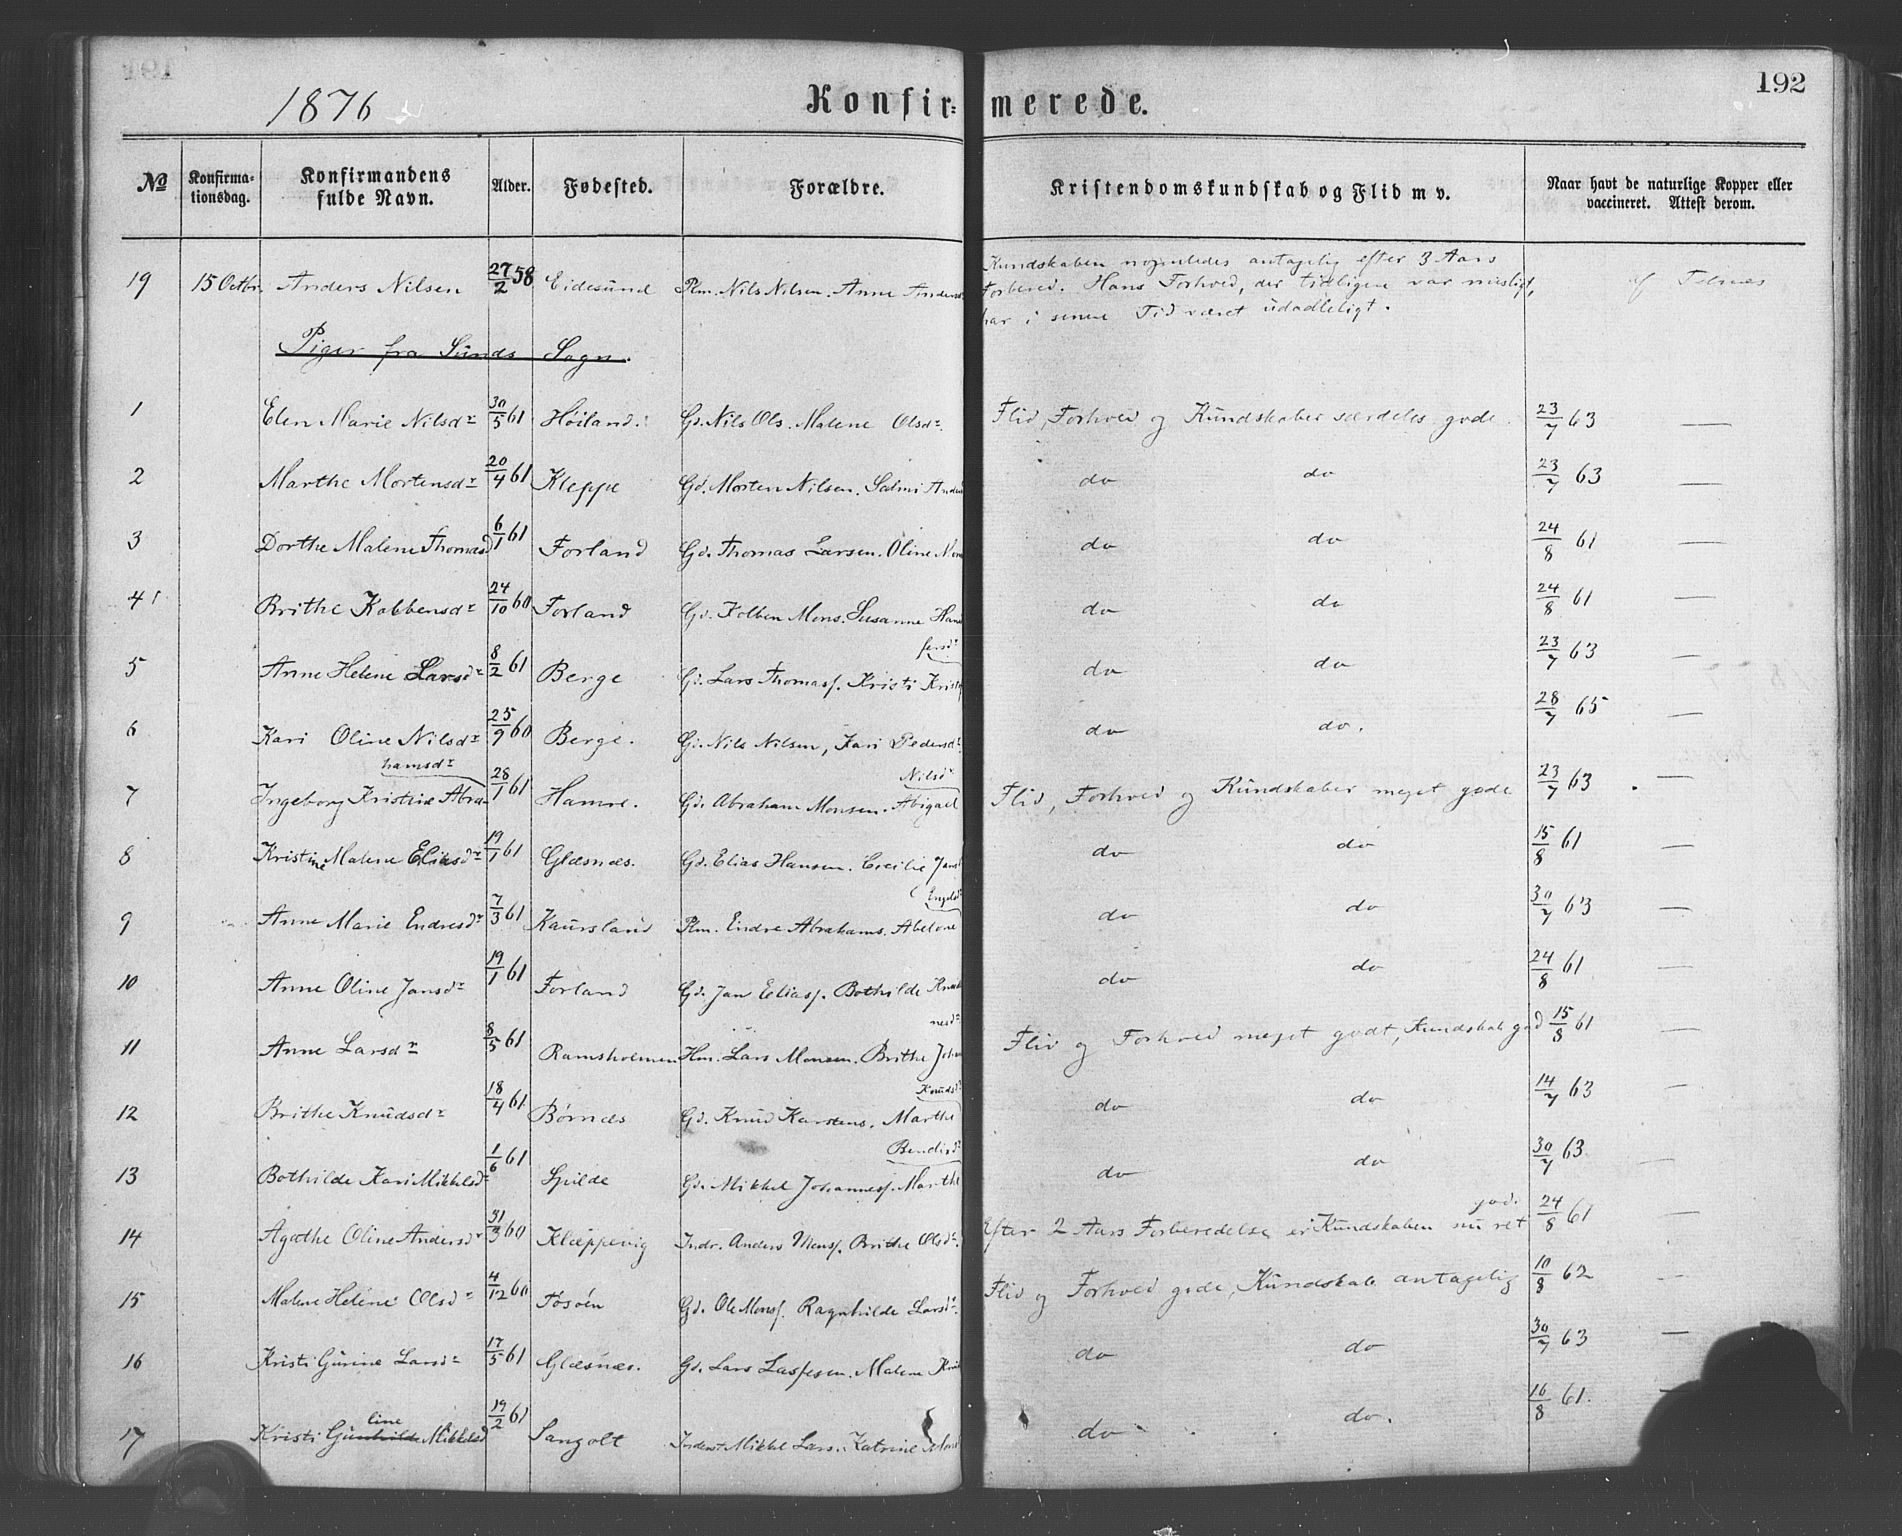 1876 Konfirmerede. 192
№ Konfirmationsdag. Konfirmandens fulde Navn. Alder. Fødested. Forældre. Kristendomskundskab og Flid m v. Naar havt de naturlige Kopper eller vaccineret. Attest derom.
Kundskaben nogenledes antagelig efter 3 Aars
19 15 Octbr. Anders Nilsen 27/2 58 Eidesund Plm. Nils Nilsen. Anne Andersd Forbered. Hans Forhold, der tidligere var misligt, af Telnæs
har i senere Tid været udadleligt.
Piger fra Sunds Sogn.
1 Elen Marie Nilsdr 30/5 61 Høiland. Gd. Nils Ols. Malene Olsdr. Flid, Forhold og Kundskaber særdeles gode. 23/7 63 —
2 Marthe Mortensdr 20/4 61 Kleppe Gd. Morten Nilsen. Salmi Anders do do 23/7 63 —
3 Dorthe Malene Thomasd 6/1 61 Forland Gd. Thomas Larsen. Oline Mon do do 24/8 61 —
4 Brithe Kolbensdr 24/10 60 Forland Gd. Kolben Mons. Susanne Hans do do 24/8 61 —
fersdr
5 Anne Helene Larsdr 8/2 61 Berge Gd. Lars Thomass. Kristi Kristof do do 23/7 63 —
6 Kari Oline Nilsdr 25/9 60 Berge. Gd. Nils Nilsen, Kari Pedersdr. do do. 28/7 65 —
hamsdr Nilsdr
7 Ingeborg Kristine Abra- 28/1 61 Hamre. Gd. Abraham Monsen. Abigael Flid, Forhold og Kundskaber meget gode 23/7 63 —
8 Kristine Malene Eliasdr 19/1 61 Glæsnæs. Gd. Elias Hansen. Cecilie Jans do do 15/8 61 —
Engelsd
9 Anne Marie Endresdr 7/3 61 Kaursland Plm. Endre Abrahams. Abelone do do 30/7 63 —
10 Anne Oline Jansdr 19/1 61 Forland Gd. Jan Eliass. Bothilde do do 24/8 61 —
nesdr
11 Anne Larsdr 8/5 61 Ramsholmen Hm. Lars Monsen. Brithe Johan Flid og Forhold meget godt, Kundskab god 15/8 61 —
Knudsd
12 Brithe Knudsdr 18/4 61 Børnæs Gd. Knud Karstens. Marthe do do 14/7 63 —
Bendixd
13 Bothilde Kari Mikkelsdr 1/6 61 Spilde Gd. Mikkel Johanness. Marthe do do 30/7 63 —
god.
14 Agathe Oline Andersdr 31/3 60 Klæppevig Indr. Anders Monss. Brithe Olsdr. Efter 2 Aars Forberedelse er Kundskaben nu ret 24/8 61 —
15 Malene Helene Olsdr 4/12 60 Tosøen Gd. Ole Monss. Ragnhilde Larsdr. Flid og Forhold gode, Kundskab antagelig 10/8 62 —
16 Kristi Gurine Larsdr 17/5 61 Glæsnæs. Gd. Lars Lassesen. Malene do do 30/7 63 —
line
17 Kristi Gunhilde Mikkelsd 19/2 61 Sangolt Inderst Mikkel Lars. Katrine Mons do do. 16/8 61. —